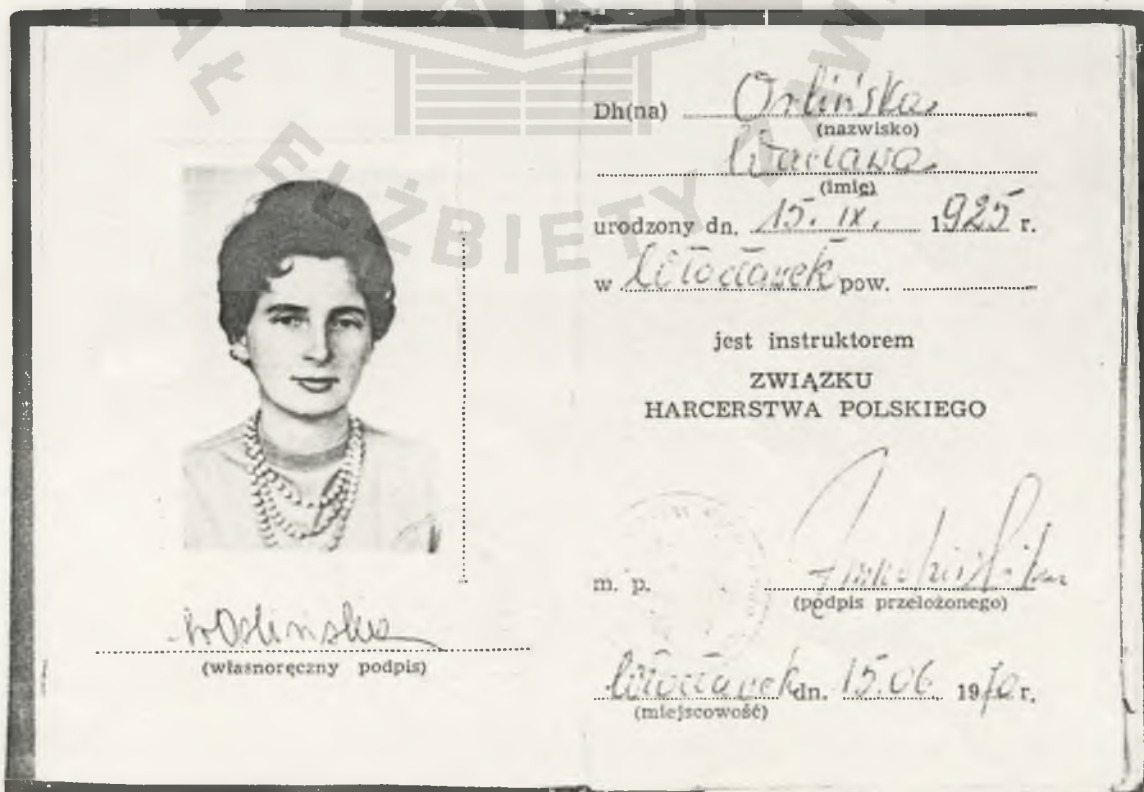 AK
AŁ ELŻBIETY ZAW
WOrlińska
(własnoręczny podpis)
Dh(na) Orlińska
(nazwisko)
Wacława
(imię)
urodzony dn. 15. IX. 1925 r.
w Włocławek pow.
jest instruktorem
ZWIĄZKU
HARCERSTWA POLSKIEGO
m. p.
(podpis przełożonego)
Włocławek dn. 15.06 1970 r.
(miejscowość)